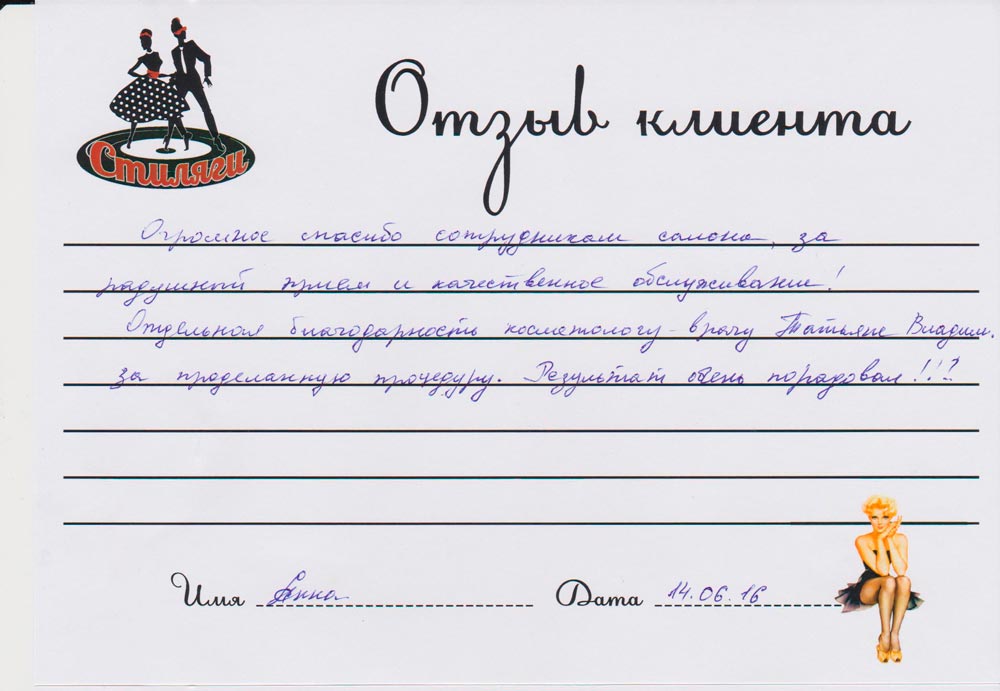 Стиляги
Отзыв клиента
Огромное спасибо сотрудникам салона, за
радушный прием и качественное обслуживание!
Отдельная благодарность косметологу-врачу Татьяне Владим.
за проделанную процедуру. Результат очень порадовал!!!
Имя Анна Дата 14.06.16